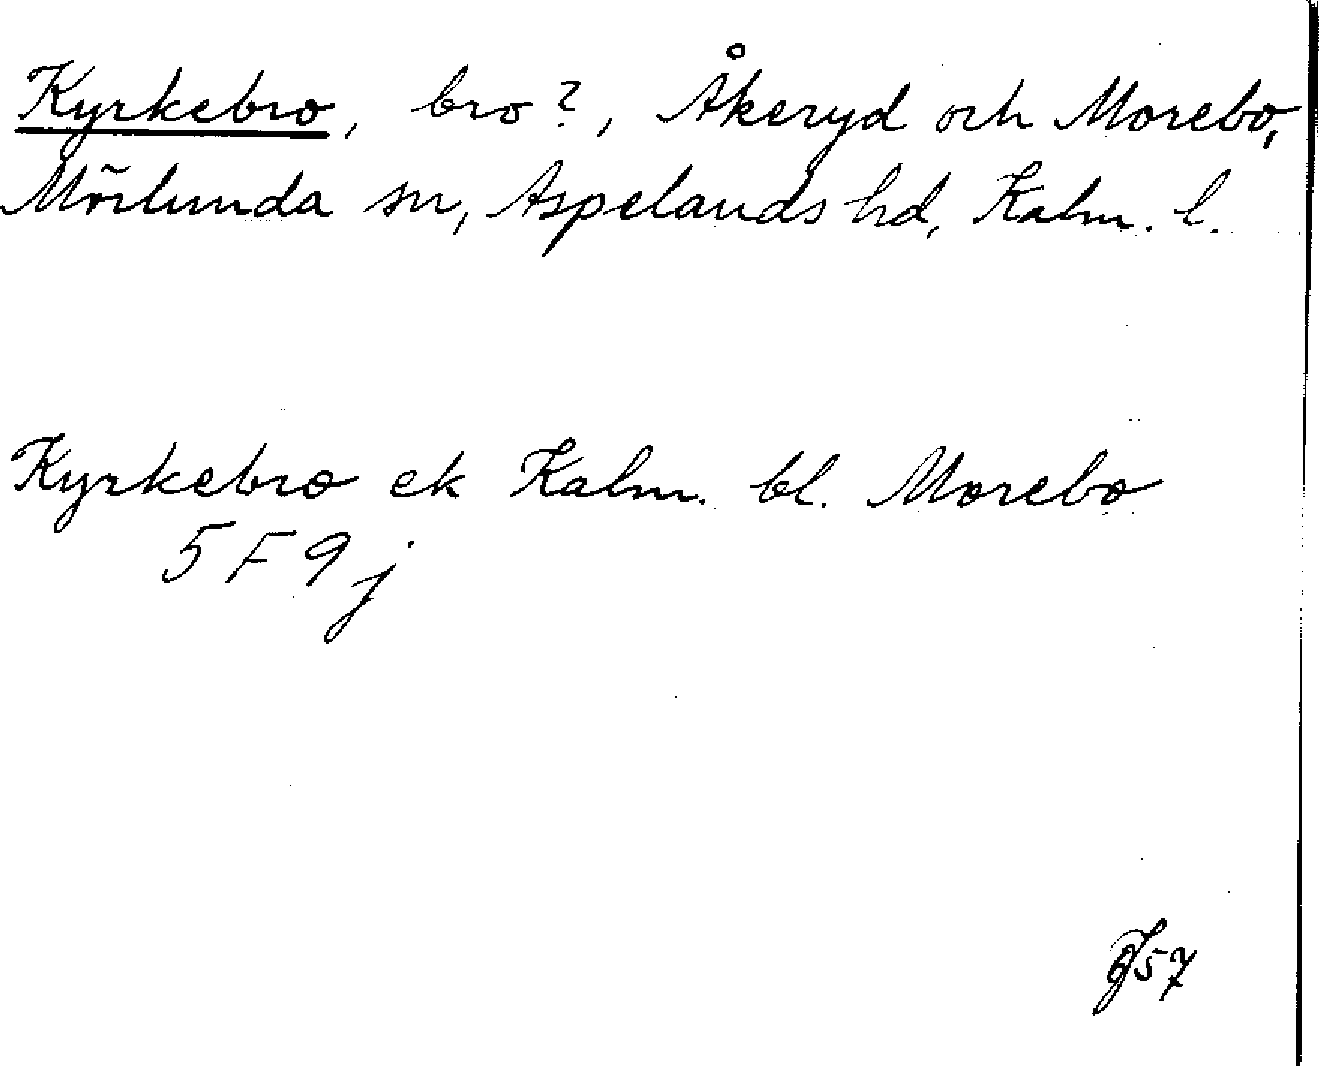 Kyrkebro, bro?, Åkeryd och Morebo,
Mörlunda sn, Aspelands hd, Kalm. l.
Kyrkebro ek Kalm. bl. Morebo
5 F 9 j
57